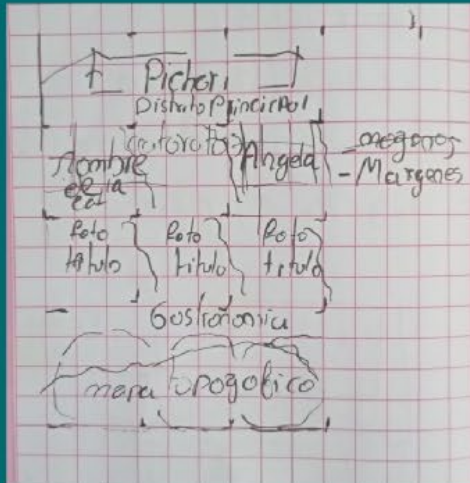 Pichari
Distrito Principal
Nombre
Angela
- Margenes
Foto Foto Foto
titulo titulo titulo
Gastronomia
mapa topografico